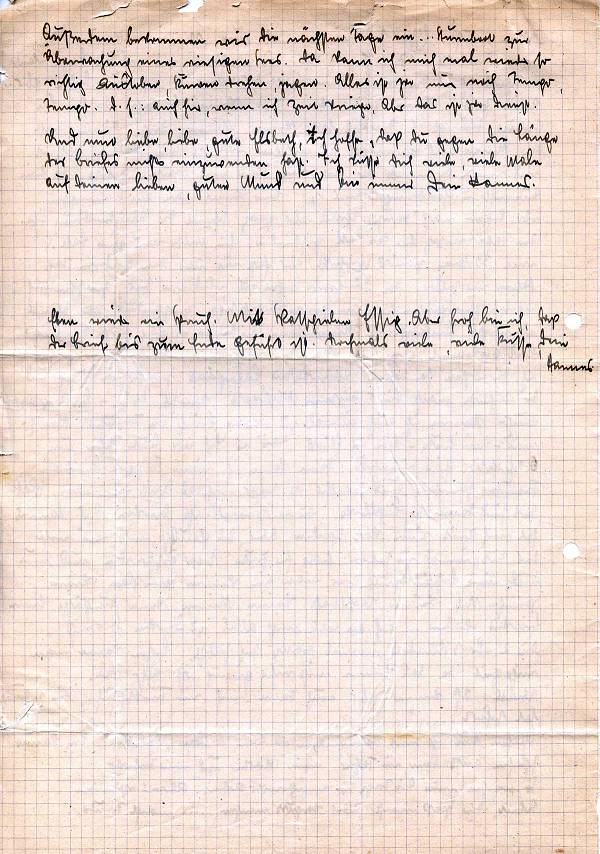 Außerdem bekommen wir die nächsten Tage ein... Sturmboot zur
Überwachung eines riesigen Sees. Da kann ich mich mal wieder so
richtig austoben, Kurven drehen, jagen. Alles ist ja nur noch Tempo,
Tempo. d. h.: auch hier, wenn ich Zeit kriege. Aber das ist ja Dienst.
Und nun liebe, liebe, gute Elsbeth, ich hoffe, daß du gegen die Länge
des Briefes nichts einzuwenden hast. Ich küsse Dich viele, viele Male
auf deinen lieben, guten Mund und bin immer Dein Hannes.
Eben wieder ein Spruch. Mit Skatspielen Essig. Aber froh bin ich, daß
der Brief bis zum Ende geführt ist. Nochmals viele, viele Küsse, Dein
Hannes